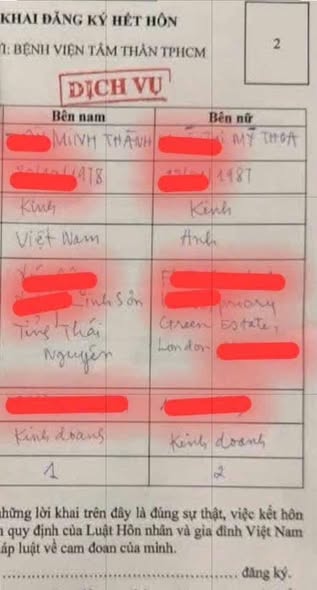 KHAI ĐĂNG KÝ HẾT HÔN
2
I: BỆNH VIỆN TÂM THẦN TPHCM
DỊCH VỤ
Bên nam
Bên nữ
MINH THÀNH
MỸ THOA
1978
1987
Kinh
Kinh
Việt Nam
Anh
Linh Sơn
Tỉnh Thái
Nguyên
Green Estate,
London
Kinh doanh
Kinh doanh
1
2
những lời khai trên đây là đúng sự thật, việc kết hôn
quy định của Luật Hôn nhân và gia đình Việt Nam
áp luật về cam đoan của mình.
đăng ký.